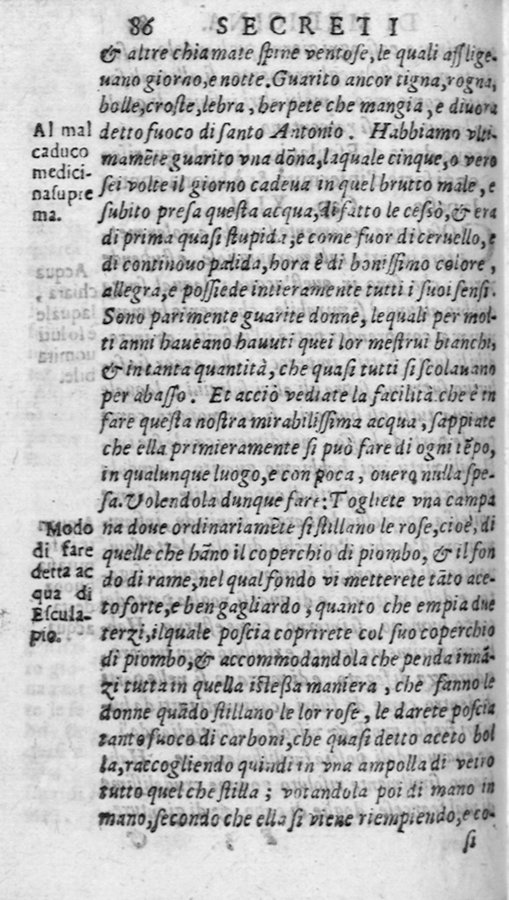 86 SECRETI
& altre chiamate spine ventose, le quali afflige-
uano giorno, e notte. Guarito ancor tigna, rogna,
bolle, croste, lebra, herpete che mangia, e diuora
detto fuoco di santo Antonio. Habbiamo vlti-
mamẽte guarito vna dõna, laquale cinque, o vero
sei volte il giorno cadeua in quel brutto male, e
subito presa questa acqua, di fatto le cessò, & era
di prima quasi stupida, e come fuor di ceruello, e
di continouo palida, hora è di bonissimo colore,
allegra, e possiede intieramente tutti i suoi sensi.
Sono parimente guarite donne, le quali per mol-
ti anni haueano hauuti quei lor mestrui bianchi,
& in tanta quantità, che quasi tutti si scolauano
per abasso. Et acciò vediate la facilità che è in
fare questa nostra mirabilissima acqua, sappiate
che ella primieramente si può fare di ogni tẽpo,
in qualunque luogo, e con poca, ouero nulla spe-
sa. Volendola dunque fare: Togliete vna campa
na doue ordinariamẽte si stillano le rose, cioè, di
quelle che hãno il coperchio di piombo, & il fon
do di rame, nel qual fondo vi metterete tãto ace-
to forte, e ben gagliardo, quanto che empia due
terzi, ilquale poscia coprirete col suo coperchio
di piombo, & accommodandola che penda innã-
zi tutta in quella istessa maniera, che fanno le
donne quãdo stillano le lor rose, le darete poscia
tanto fuoco di carboni, che quasi detto aceto bol
la, raccogliendo quindi in vna ampolla di vetro
tutto quel che stilla; votandola poi di mano in
mano, secondo che ella si viene riempiendo, e co-
si
Al mal
caduco
medici-
na supre
ma.
Modo
di fare
detta ac
qua di
Escula-
pio.